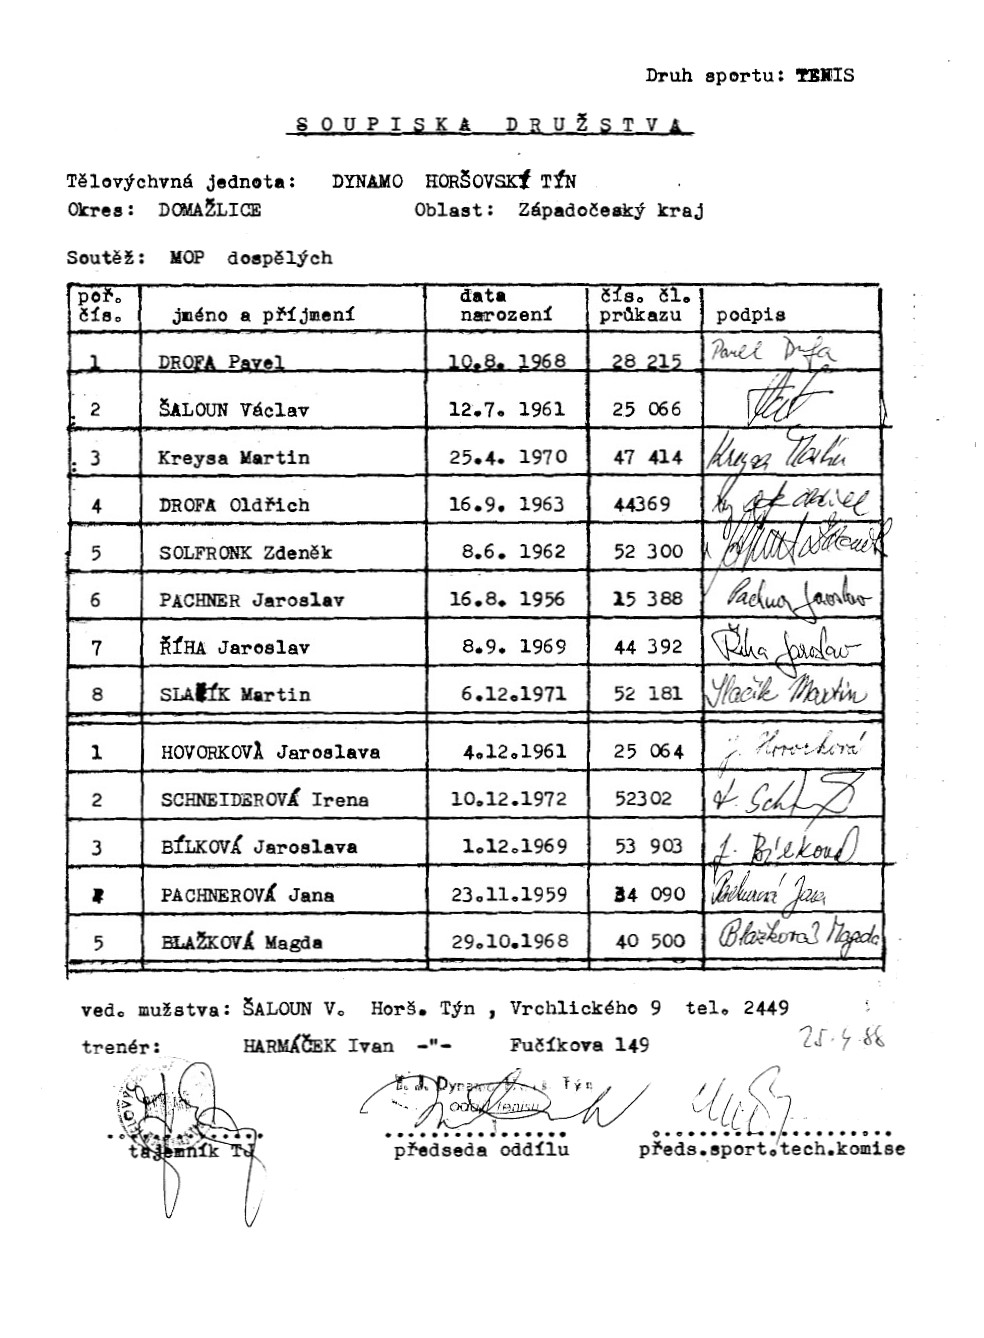 Druh sportu: TENIS
SOUPISKA DRUŽSTVA
Tělovýchvná jednota: DYNAMO HORŠOVSKÝ TÝN
Okres: DOMAŽLICE Oblast: Západočeský kraj
Soutěž: MOP dospělých
poř. čís. jméno a příjmení data narození čís. čl. průkazu podpis
1 DROFA Pavel 10.8. 1968 28 215 Pavel Drofa
2 ŠALOUN Václav 12.7. 1961 25 066
3 Kreysa Martin 25.4. 1970 47 414 Kreysa Martin
4 DROFA Oldřich 16.9. 1963 44369
5 SOLFRONK Zdeněk 8.6. 1962 52 300 Solfronk Zdeněk
6 PACHNER Jaroslav 16.8. 1956 15 388 Pachner Jaroslav
7 ŘÍHA Jaroslav 8.9. 1969 44 392 Říha Jaroslav
8 SLAČÍK Martin 6.12.1971 52 181 Slačík Martin
1 HOVORKOVÁ Jaroslava 4.12.1961 25 064 J. Hovorková
2 SCHNEIDEROVÁ Irena 10.12.1972 52302
3 BÍLKOVÁ Jaroslava 1.12.1969 53 903 J. Bílková
4 PACHNEROVÁ Jana 23.11.1959 34 090 Pachnerová Jana
5 BLAŽKOVÁ Magda 29.10.1968 40 500 Blažková Magda
ved. mužstva: ŠALOUN V. Horš. Týn , Vrchlického 9 tel. 2449
trenér: HARMÁČEK Ivan -"- Fučíkova 149 25.4.88
T. J. Dynamo Horš. Týn
oddíl tenisu
tajemník TJ předseda oddílu předs.sport.tech.komise